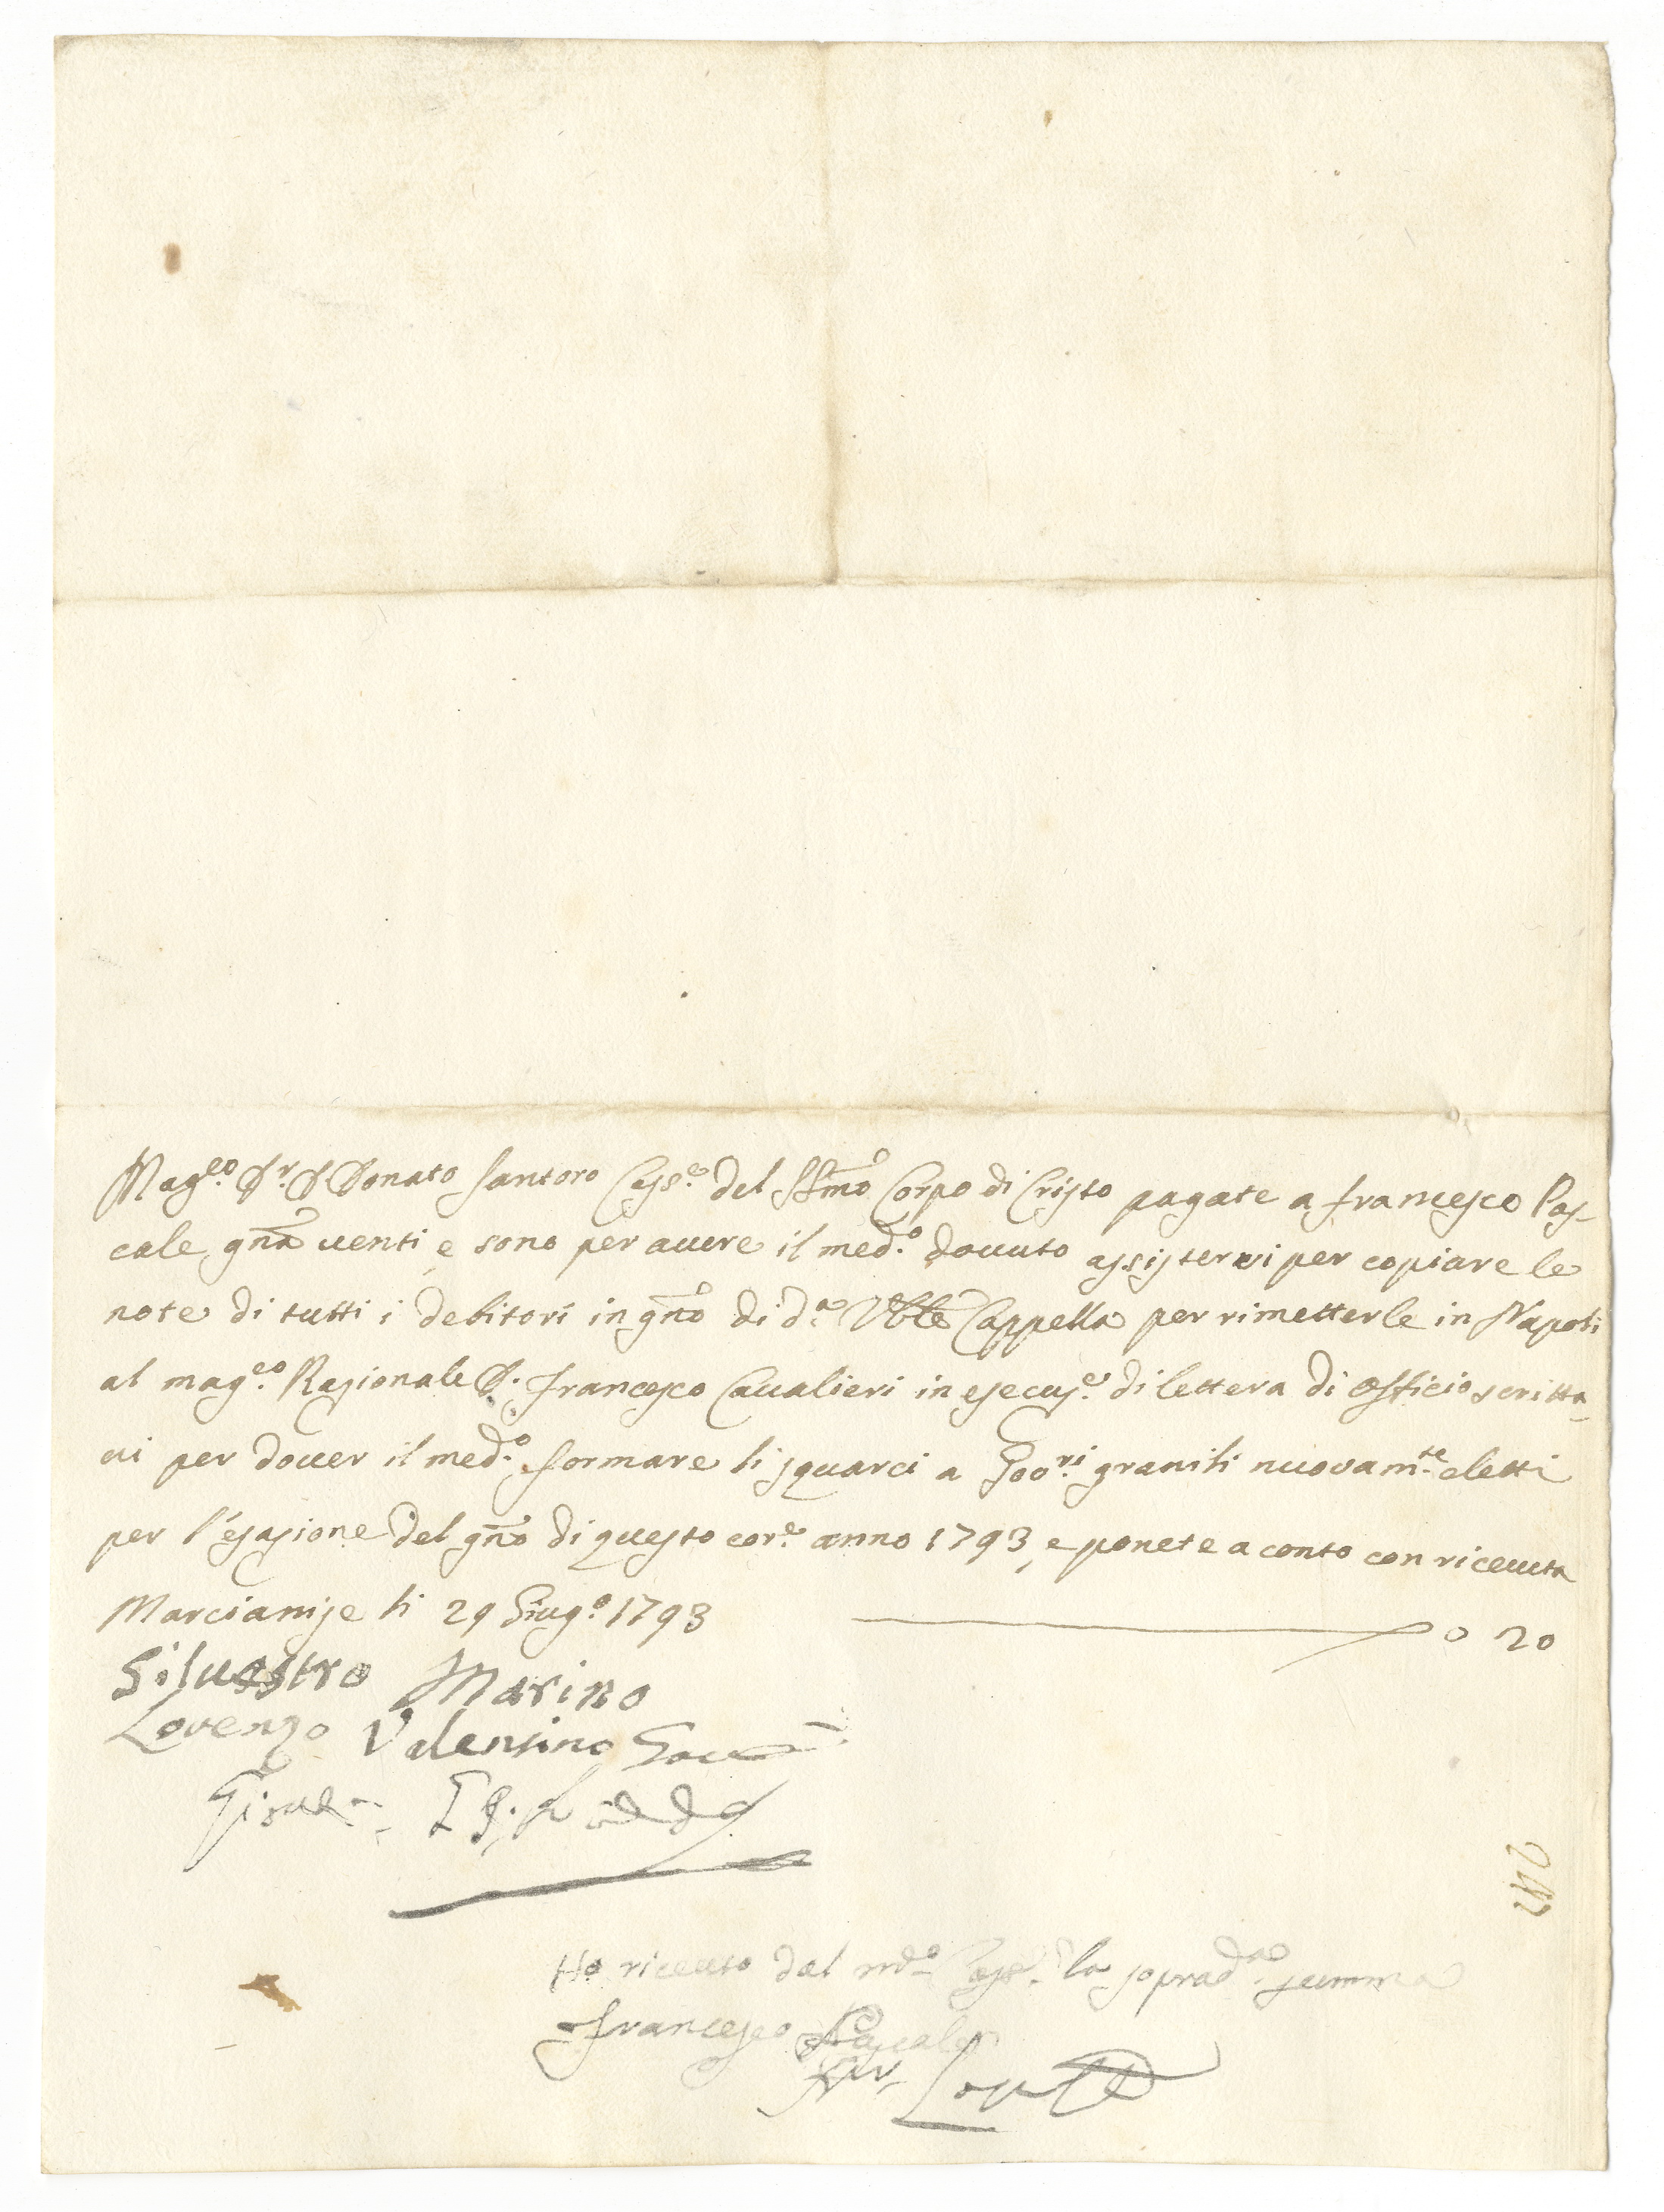 Mag.co D.r D. Donato Santoro Cass.e del SS.mo Corpo di Cristo pagate a Francesco Pas-
cale gna venti e sono per avere il med.o dovuto assistervi per copiare le
note di tutti i debitori in gno di d.a Vble Cappella per rimetterle in Napoli
al mag.co Razionale D. Francesco Cavalieri in esecuz.e di lettera di officio scritta-
vi per dover il med.o formare li squarci a Goo.ri granili nuovam.te eletti
per l'esazione del gno di questo cor.e anno 1793, e ponete a conto con ricevuta
Marcianise li 29 Giug.o 1793 o 20
Silvestro Marino
Lorenzo Valentino
Ho riceuto dal md.o Cass.e la soprad.a summa
Francesco Pascale